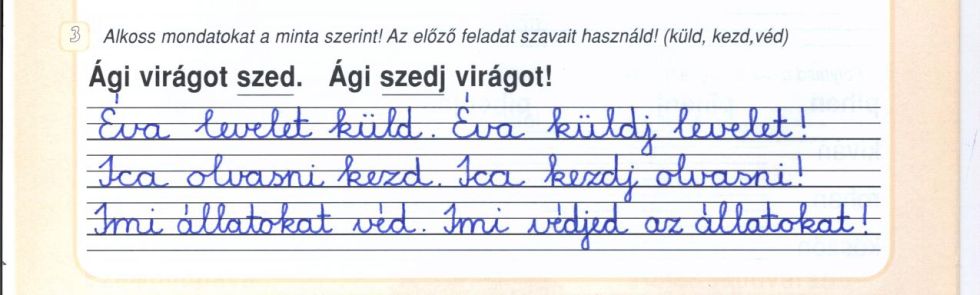 3 Alkoss mondatokat a minta szerint! Az előző feladat szavait használd! (küld, kezd,véd)
Ági virágot szed. Ági szedj virágot!
Éva levelet küld. Éva küldj levelet!
Ica olvasni kezd. Ica kezdj olvasni!
Imi állatokat véd. Imi védjed az állatokat!